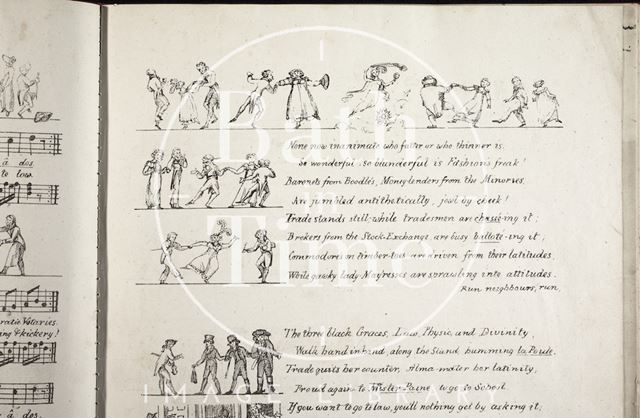 à dos.
to low.
ratic Votaries.
ing & kickery!
à dos.
None now inanimate who fatter or who thinner is,
So wonderful so blunderful is Fashion's freak!
Baronets from Boodle's, Moneylenders from the Minories,
Are jumbled antithetically, jowl by cheek!
Trade stands still while tradesmen are chassé-ing it;
Brokers from the Stock-Exchange are busy ballote-ing it;
Commodores on timber-toes are driven from their latitudes,
While gawky lady May'resses are sprawling into attitudes.
Run neighbours, run,
The three black Graces, Law, Physic, and Divinity,
Walk hand in hand, along the Strand humming la Poule.
Trade quits her counter, Alma mater her latinity,
Proud again to Mister Paine to go to School.
If you want to go to law, you'll nothing get by asking it,
Bath in Time
IMAGE LIBRARY